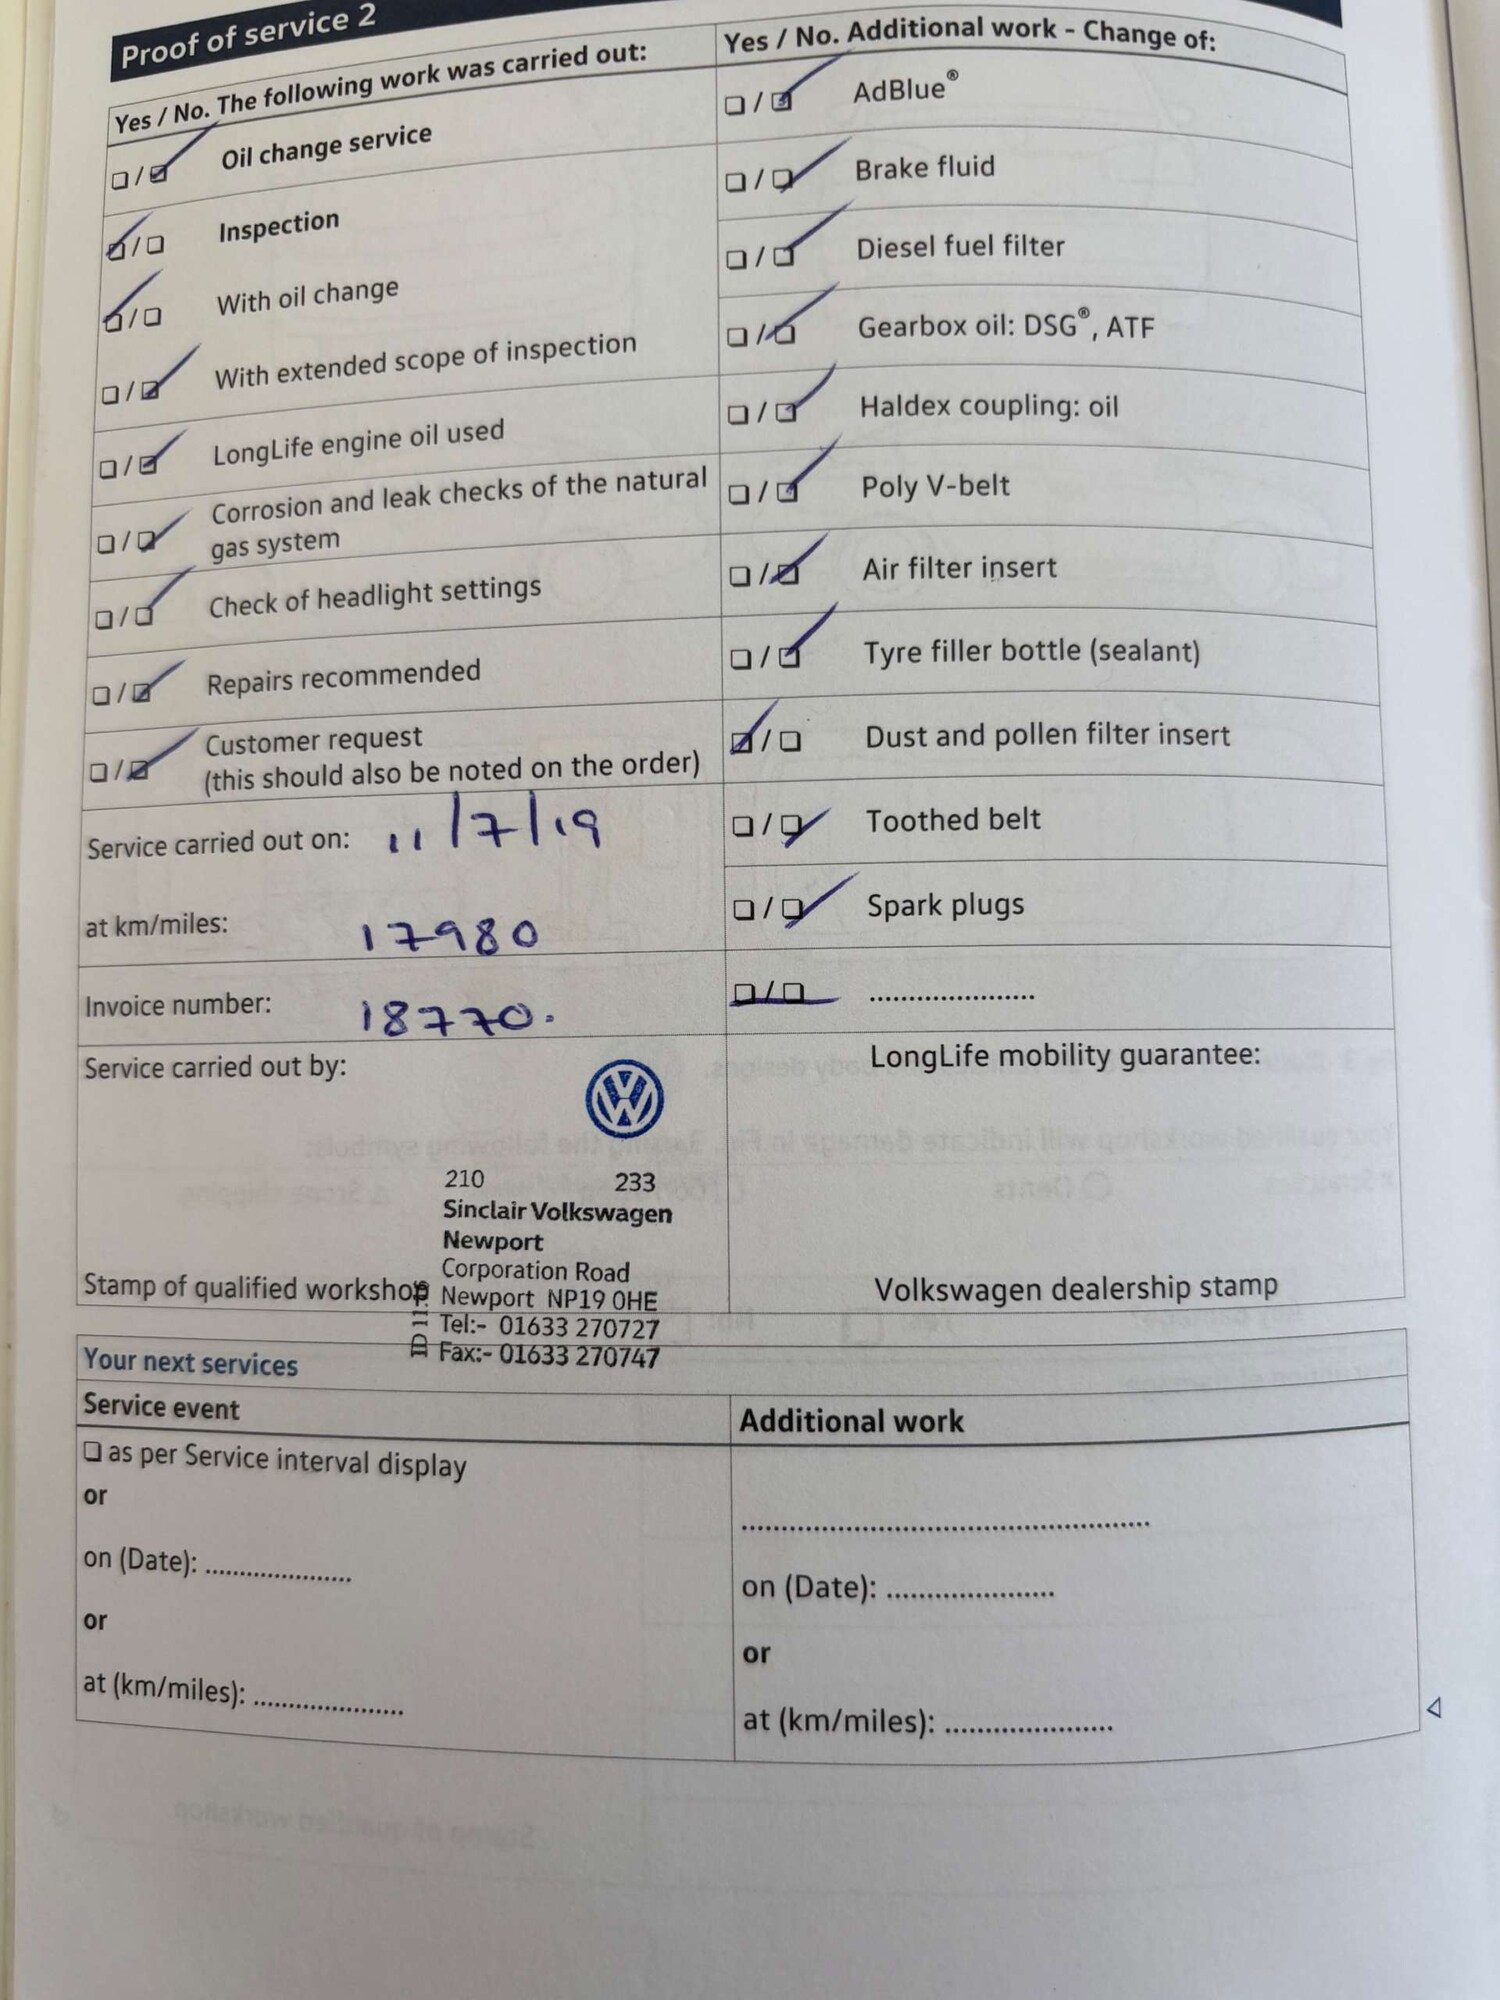 Proof of service 2
Yes / No. The following work was carried out:
❏ / ❏ Oil change service
❏ / ❏ Inspection
❏ / ❏ With oil change
❏ / ❏ With extended scope of inspection
❏ / ❏ LongLife engine oil used
❏ / ❏ Corrosion and leak checks of the natural
gas system
❏ / ❏ Check of headlight settings
❏ / ❏ Repairs recommended
❏ / ❏ Customer request
(this should also be noted on the order)
Service carried out on: 11/7/19
at km/miles: 17980
Invoice number: 18770.
Service carried out by:
210 233
Sinclair Volkswagen
Newport
Corporation Road
Newport NP19 0HE
Tel:- 01633 270727
Fax:- 01633 270747
Stamp of qualified workshop
Yes / No. Additional work - Change of:
❏ / ❏ AdBlue®
❏ / ❏ Brake fluid
❏ / ❏ Diesel fuel filter
❏ / ❏ Gearbox oil: DSG®, ATF
❏ / ❏ Haldex coupling: oil
❏ / ❏ Poly V-belt
❏ / ❏ Air filter insert
❏ / ❏ Tyre filler bottle (sealant)
❏ / ❏ Dust and pollen filter insert
❏ / ❏ Toothed belt
❏ / ❏ Spark plugs
❏ / ❏ .....................
LongLife mobility guarantee:
Volkswagen dealership stamp
Your next services
Service event
❏ as per Service interval display
or
on (Date): .....................
or
at (km/miles): .....................
Additional work
..................................................
on (Date): .....................
or
at (km/miles): .....................